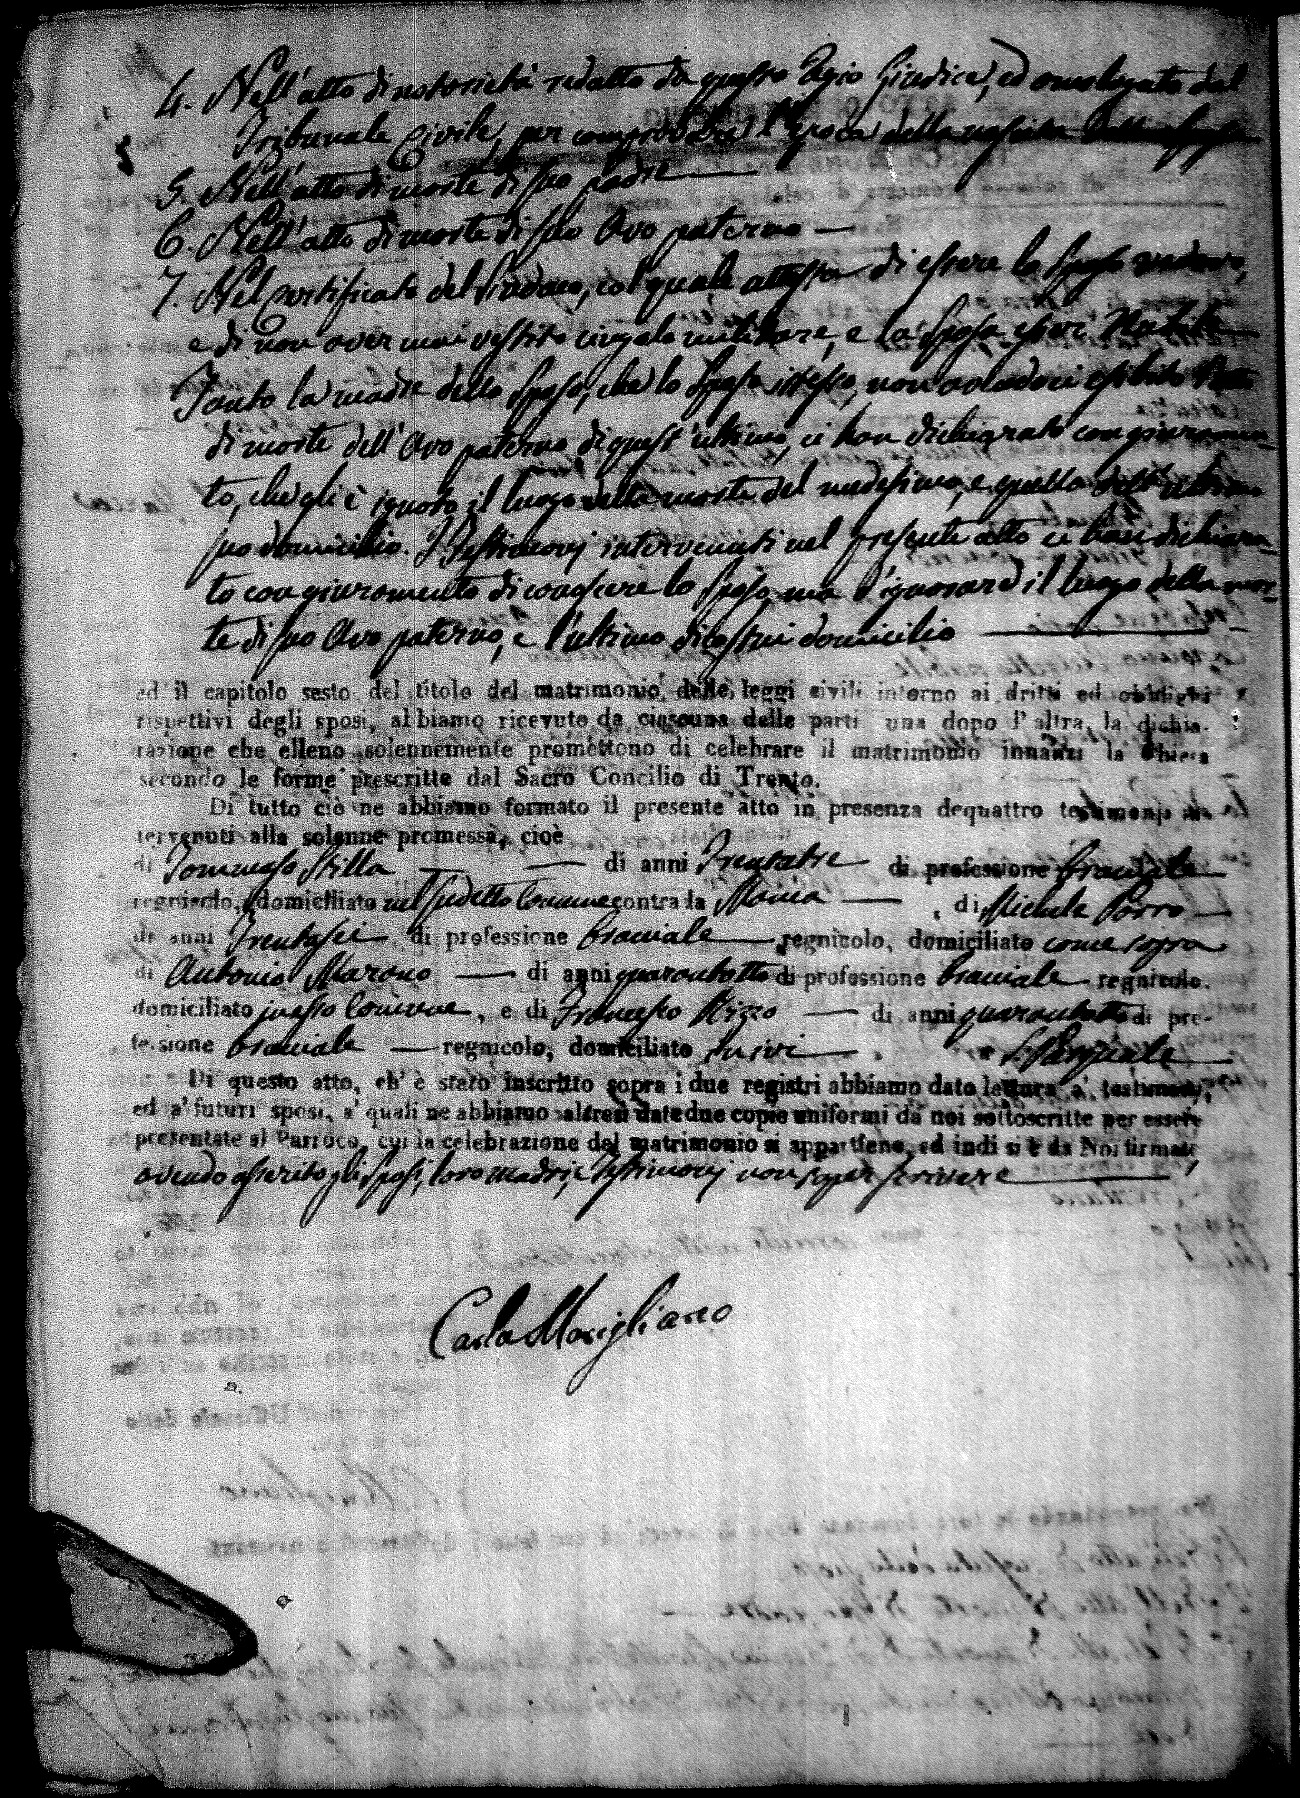 4. Nell'atto di notorietà redatto da questo Regio Giudice, ed omologato dal
Tribunale Civile, per comprovare l'Epoca della nascita
5. Nell'atto di morte di suo padre
6. Nell'atto di morte di suo Avo paterno
7. Nel certificato del Sindaco, col quale attesta di essere lo Sposo vedovo,
e di non aver mai vestito cingolo militare, e la Sposa esser Nubile
Tanto la madre dello Sposo, che lo Sposo istesso, non avendoci esibito l'atto
di morte dell'Avo paterno di quest'ultimo, ci han dichiarato con giuramen-
to, che gli è ignoto il luogo della morte del medesimo, e quello dell'ultimo
suo domicilio. I Testimonj intervenuti nel presente atto ci han dichiara-
to con giuramento di conoscere lo Sposo, ma d'ignorare il luogo della mor-
te di suo Avo paterno, e l'ultimo di costui domicilio
ed il capitolo sesto del titolo del matrimonio delle leggi civili intorno ai dritti ed obblighi
rispettivi degli sposi, abbiamo ricevuto da ciascuna delle parti una dopo l'altra, la dichia-
razione che elleno solennemente promettono di celebrare il matrimonio innanzi la Chiesa
secondo le forme prescritte dal Sacro Concilio di Trento.
Di tutto ciò ne abbiamo formato il presente atto in presenza de quattro testimonj in-
tervenuti alla solenne promessa, cioè
di Tommaso Stilla di anni Trentatre di professione bracciale
regnicolo, domiciliato nel sudetto Comune contra la Maria , di Michele Porro
di anni Trentasei di professione bracciale regnicolo, domiciliato come sopra
di Antonio Marano di anni quarantotto di professione bracciale regnicolo,
domiciliato in esso Comune, e di Francesco Rizzo di anni quarantotto di pro-
fessione bracciale regnicolo, domiciliato ivi . S. Pasquale
Di questo atto, ch'è stato inscritto sopra i due registri abbiamo dato lettura a' testimonj,
ed a' futuri sposi, a' quali ne abbiamo altresì date due copie uniformi da noi sottoscritte per essere
presentate al Parroco, cui la celebrazione del matrimonio si appartiene, ed indi si è da Noi firmato
avendo asserito gli sposi, loro madri, e Testimonj non saper scrivere
Carlo Marigliano